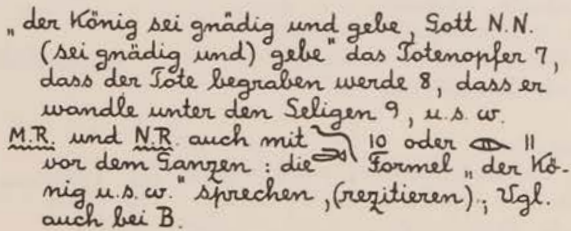 „der König sei gnädig und gebe, Gott N.N.
(sei gnädig und) gebe“ das Totenopfer 7,
dass der Tote begraben werde 8, dass er
wandle unter den Seligen 9, u.s.w.
M.R. und N.R. auch mit 10 oder 11
vor dem Ganzen : die Formel „der Kö-
nig u.s.w.“ sprechen, (rezitieren).; Vgl.
auch bei B.